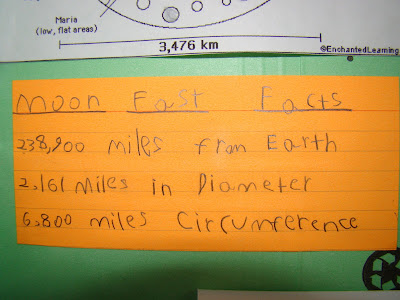 Maria
(low, flat areas)
3,476 km
©EnchantedLearning
Moon Fast Facts
238,900 miles from Earth
2,161 Miles in Diameter
6,800 miles Circumference